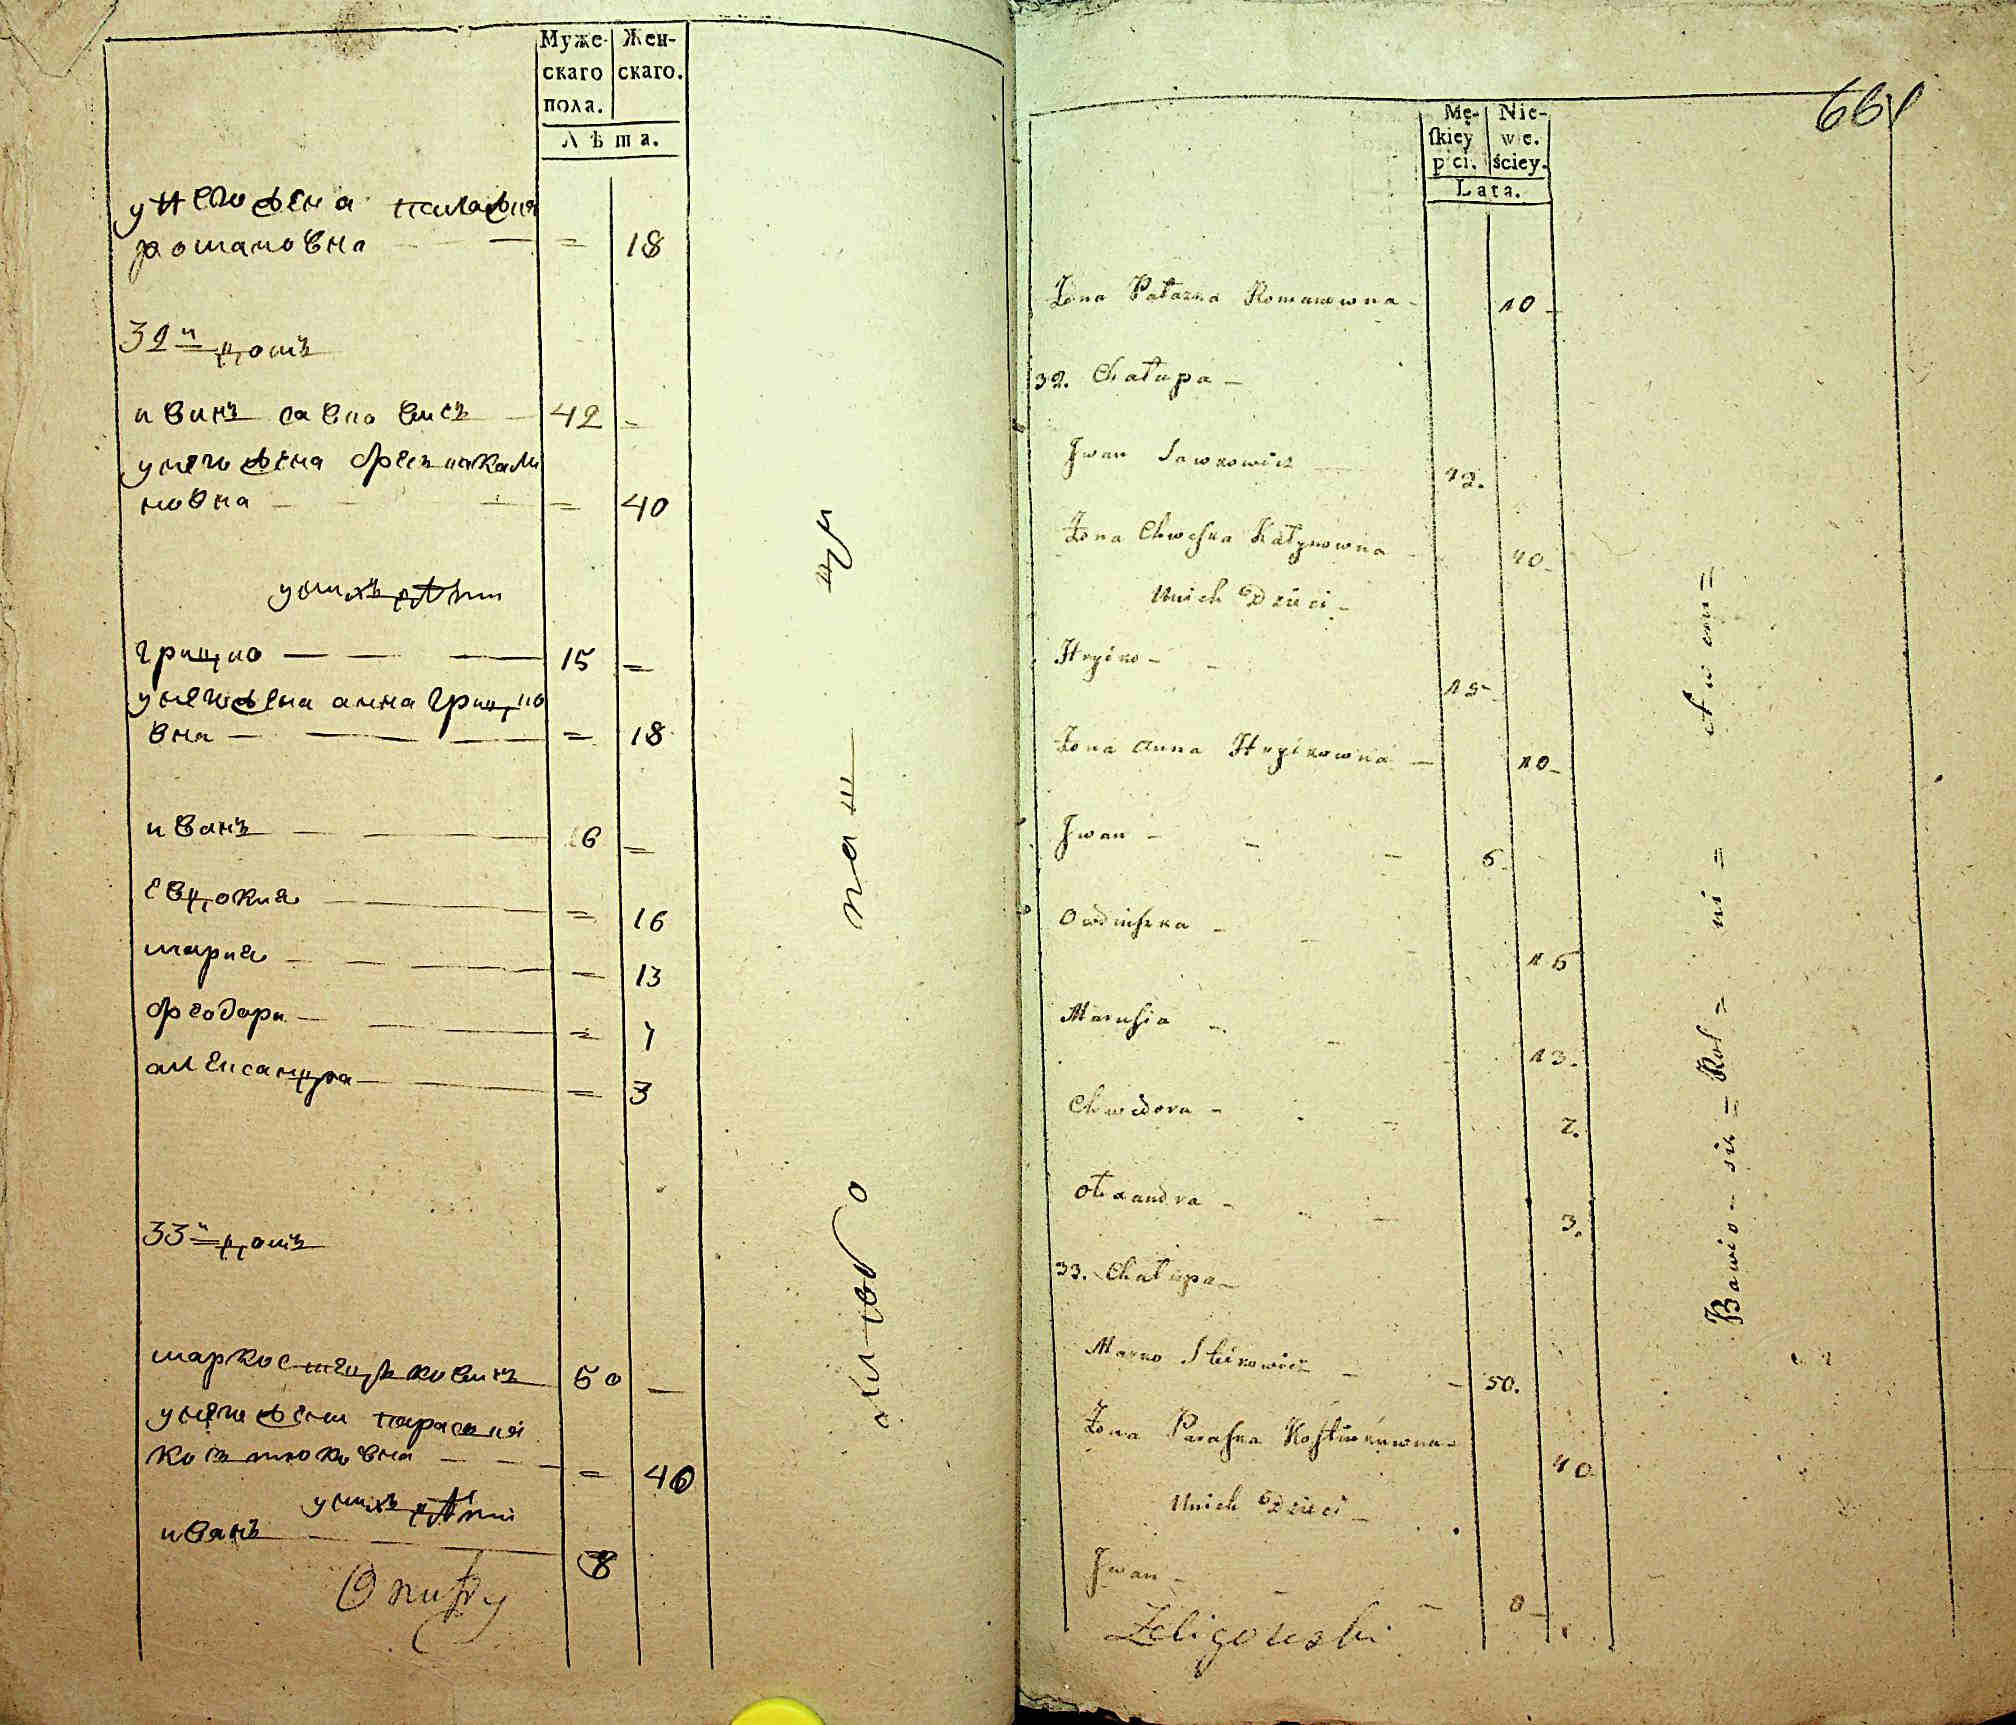 Муже-
скаго
пола.
Жен-
скаго.
Лѣта.
у него жена палагия
романовна — — = 18
32й домъ
иванъ савковичъ — 42 –
у него жена фесика кали
новна — — — = 40
у нихъ дѣти
грицко — — — 15 =
у него жена анна грицко
вна — — — = 18
иванъ — — 6 =
евдокия — — = 16
мария — — — = 13
феодора — — = 7
александра — — = 3
33й домъ
марко стецковичъ 50 —
у него жена параския
костюковна — — — = 40
у нихъ дѣти
иванъ — — 8
Mę-
ſkiey
płci.
Nie-
we.
ściey.
Lata.
661
Żona Pałazka Romanowna – 18 –
32. Chałupa –
Jwan Sawkowicz — 42.
Żona Chweſka Kałynowna — 40 –
Unich Dzieci –
Hryćko – – 15 –
Żona Anna Hryćkowna — 18 –
Jwan – – – 6 –
Owdiuſzka – – 16
Maruſia – – 13.
Chwedora – – – 7.
Ołexandra – – – 3.
33. Chałupa –
Marko Stećkowicz — – 50.
Żona Paraſka Koſtiukowna – 40
Unich Dzieci –
Jwan – – – 8 –
Żeligowski